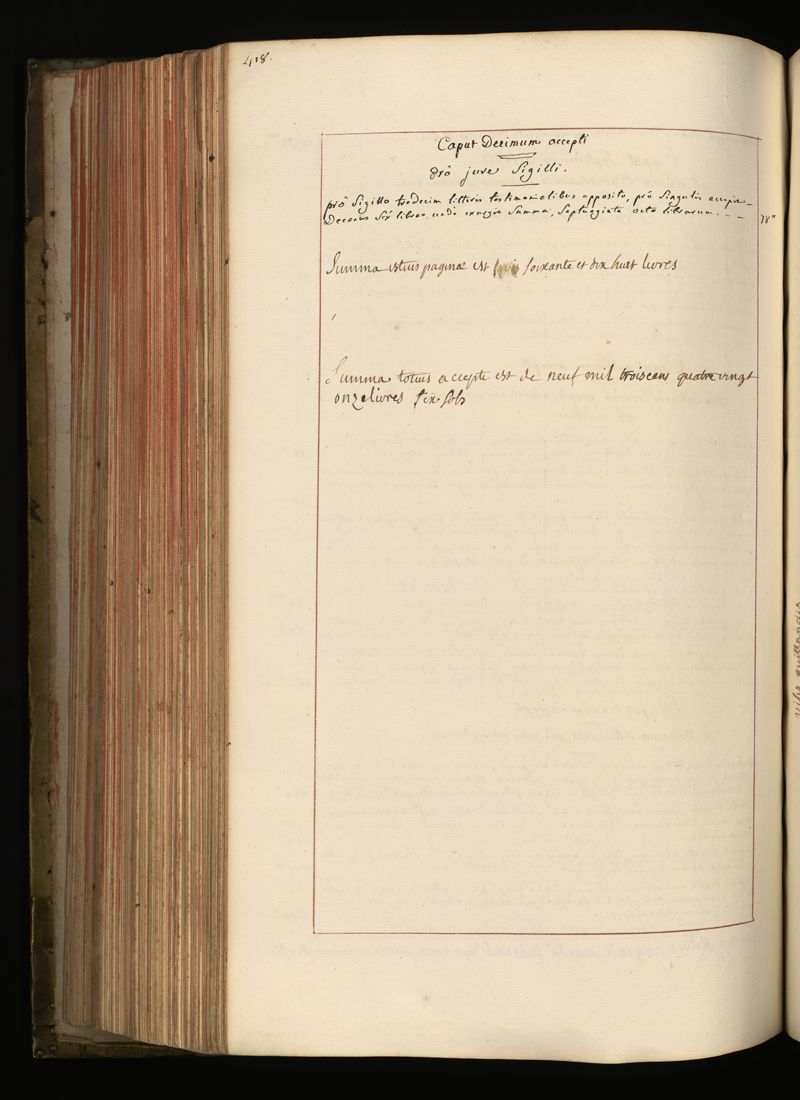 418.
Caput Decimum accepti
prô jure Sigilli.
prô Sigillo tredecim litteris testimonialibus apposito, prô Singulis accepit
Decanus Sex libras, unde exurgit Summa, Septuaginta octo librarum. 78ᵗᵗ
Summa istius paginæ est soixante et dix huit livres
Summa totius accepti est de neuf mil trois cens quatre vingt
onze livres six sols